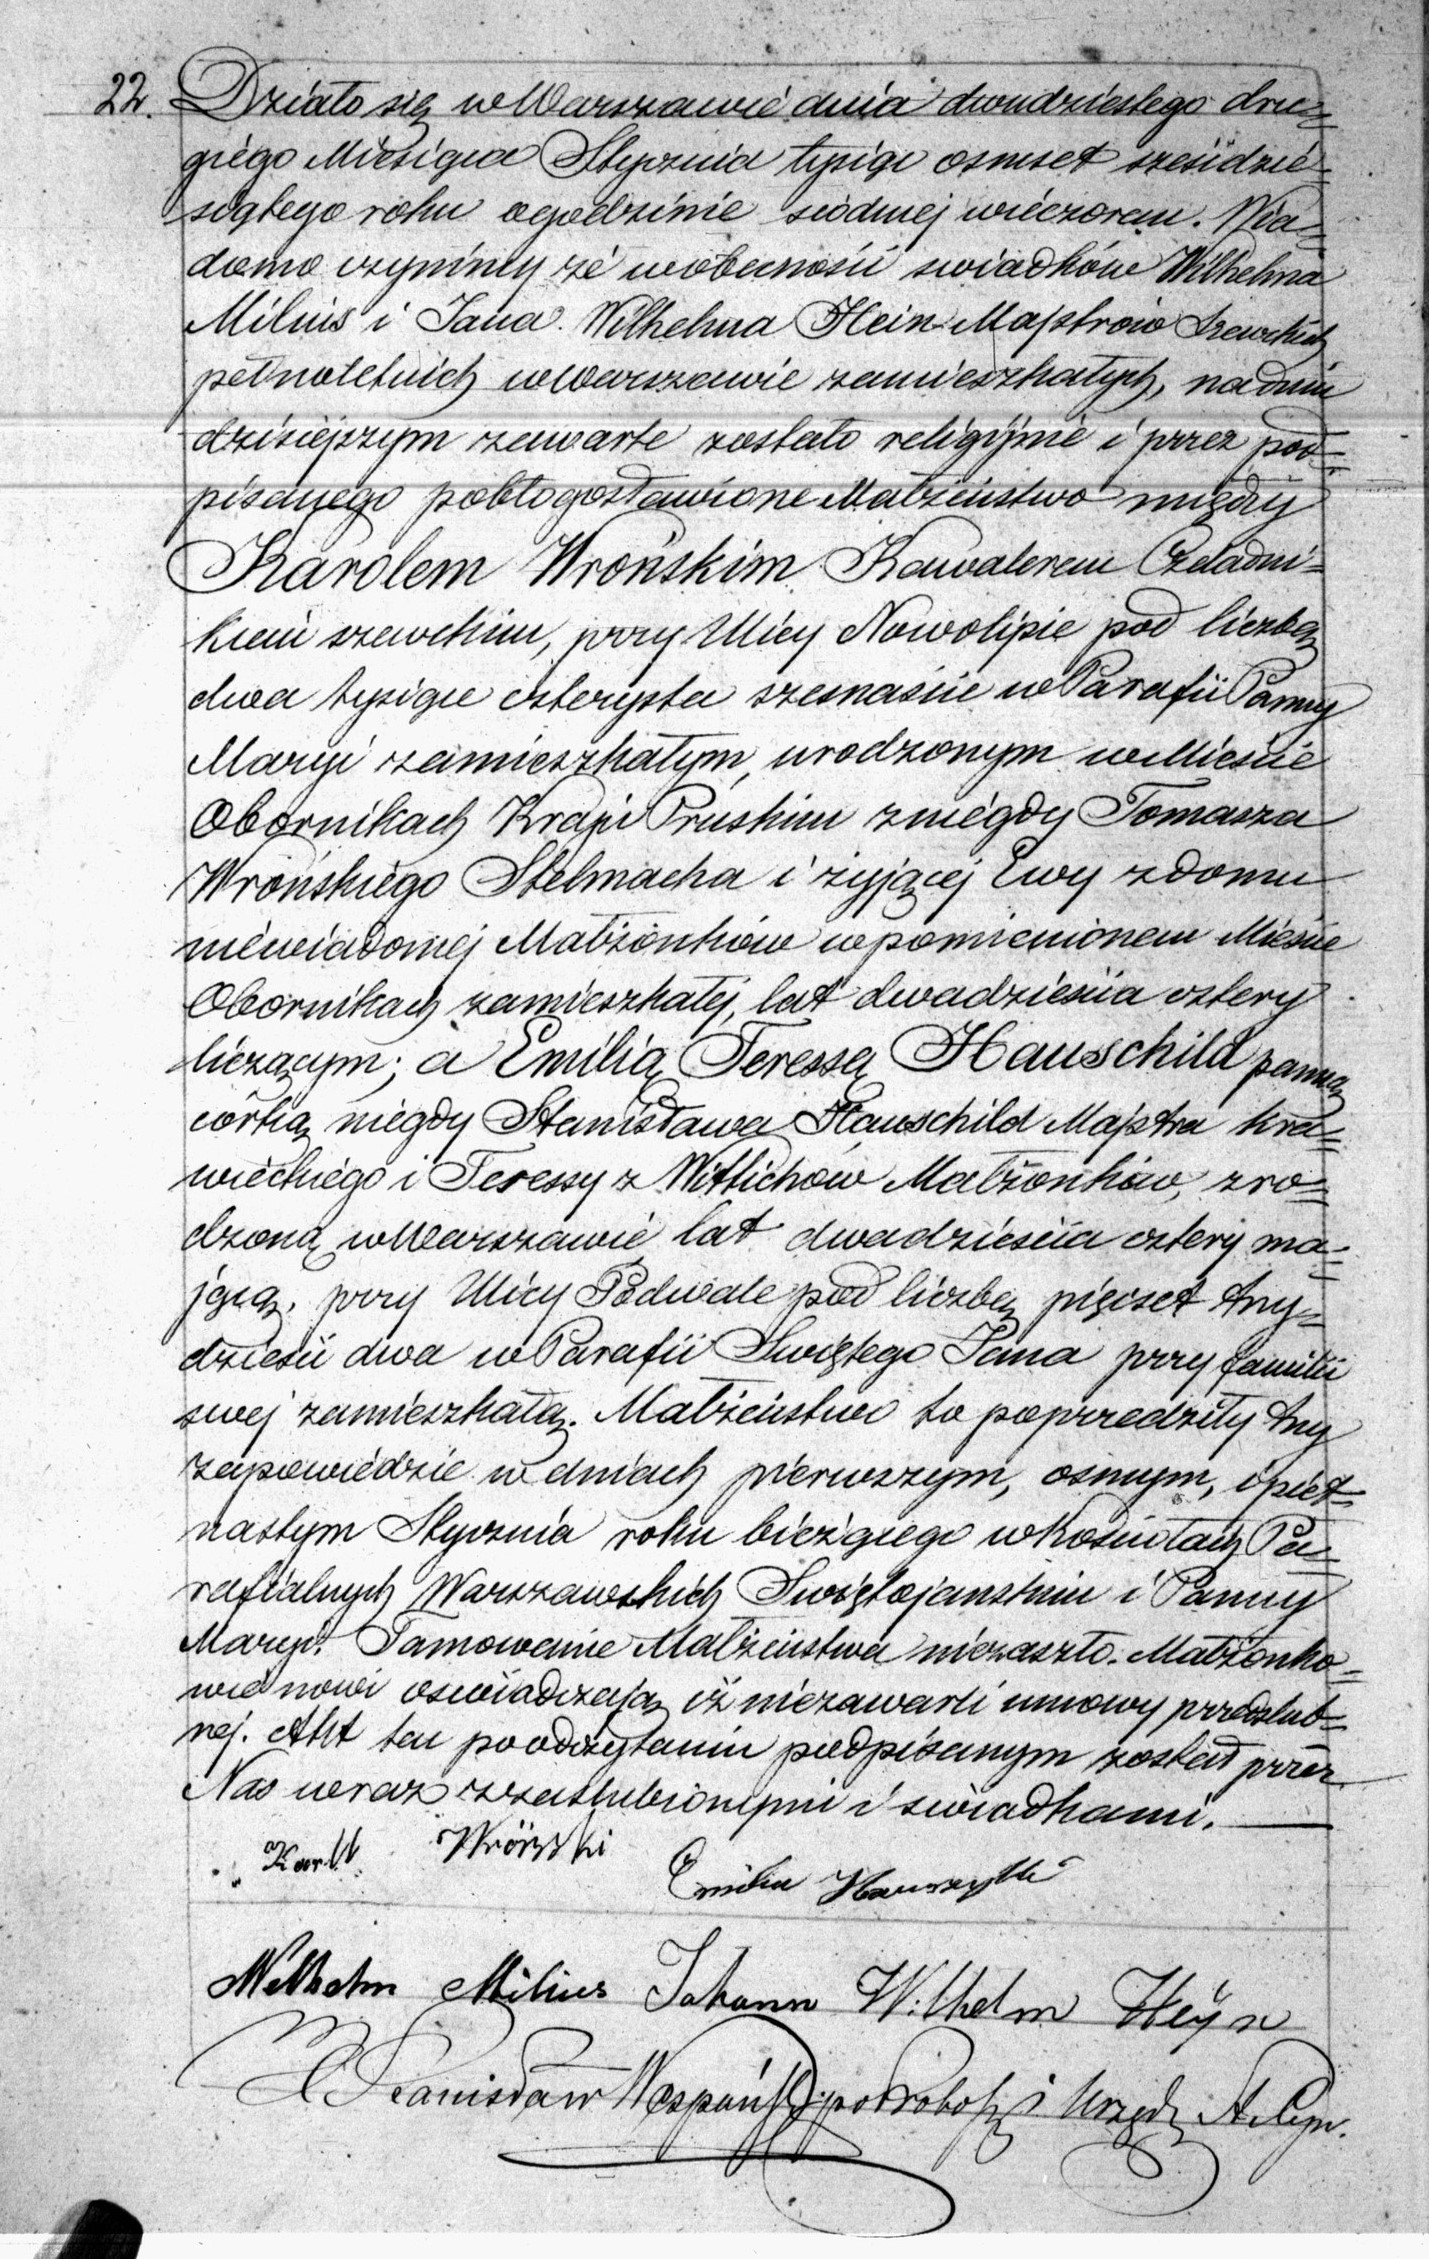 22. Działo się w Warszawie dnia dwudziestego dru=
giego Miesiąca Stycznia tysiąc osmset sześćdzie=
siątego roku o godzinie siódmej wieczorem. Wia=
domo czyniemy że w obecności swiadków Wilhelma
Milius i Jana Wilhelma Hein Majstrów szewckich
pełnoletnich w Warszawie zamieszkałych, na dniu
dzisiejszym zawarte zostało religijnie i przez pod=
pisanego pobłogosławione Małżeństwo między
Karolem Wrońskim Kawalerem Czeladni=
kiem szewckim, przy Ulicy Nowolipie pod liczbą
dwa tysiące czterysta szesnaście w Parafii Panny
Maryi zamieszkałym, urodzonym w Mieście
Obornikach Kraju Pruskim z niegdy Tomasza
Wrońskiego Stelmacha i żyjącej Ewy z domu
niewiadomej Małżonków w pomienionem Mieście
Obornikach zamieszkałej, lat dwadzieścia cztery
liczącym; a Emilią Teressą Hauschild panną
córką niegdy Stanisława Hauschild Majstra kra=
wieckiego i Teressy z Wittichów Małżonków, zro=
dzoną w Warszawie lat dwadzieścia cztery ma=
jącą, przy Ulicy Podwale pod liczbą pięcset trzy=
dzieści dwa w Parafii Swiętego Jana przy familii
swej zamieszkałą. Małżeństwo to poprzedziły trzy
zapowiedzie w dniach pierwszym, osmym, i piet=
nastym Stycznia roku bieżącego w Kościołach Pa=
rafialnych Warszawskich Swiętojanskim i Panny
Maryi. Tamowanie Małżeństwa niezaszło. Małżonko=
wie nowi oswiadczają iż niezawarli umowy przedslub=
nej. Akt ten po odczytaniu podpisanym został przez
Nas wraz z zaslubionymi i swiadkami.
Karol Wrōński
Emilia Hauszyld
Wilhelm Milius Johann Wilhelm Heyn
X Stanisław po Urzęd. St. Cyw.